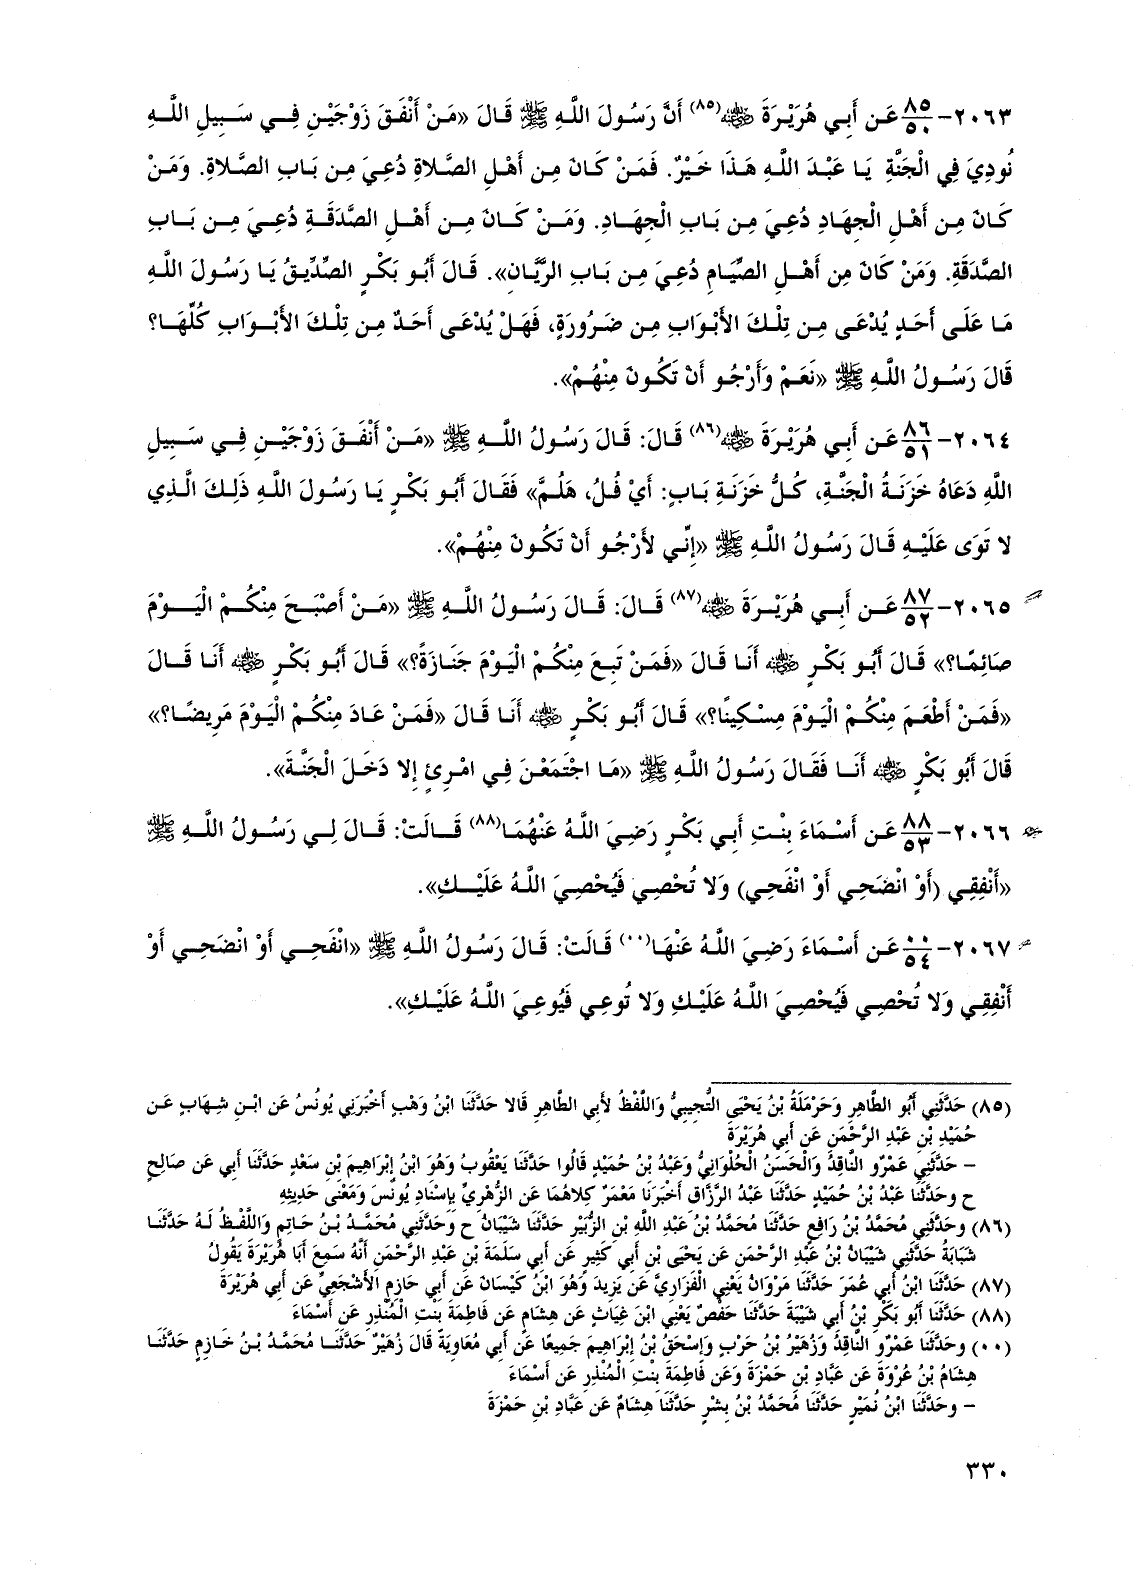 ٢٠٦٣- ٨٥/٥٠ عَن أَبِي هُرَيْرَةَ ﵁(٨٥) أَنَّ رَسُولَ اللَّهِ ﷺ قَالَ «مَنْ أَنْفَقَ زَوْجَيْنِ فِي سَبِيلِ اللَّهِ
نُودِيَ فِي الْجَنَّةِ يَا عَبْدَ اللَّهِ هَذَا خَيْرٌ. فَمَنْ كَانَ مِن أَهْلِ الصَّلاةِ دُعِيَ مِن بَابِ الصَّلاةِ. وَمَنْ
كَانَ مِن أَهْلِ الْجِهَادِ دُعِيَ مِن بَابِ الْجِهَادِ. وَمَنْ كَانَ مِن أَهْلِ الصَّدَقَةِ دُعِيَ مِن بَابِ
الصَّدَقَةِ. وَمَنْ كَانَ مِن أَهْلِ الصِّيَامِ دُعِيَ مِن بَابِ الرَّيَّانِ». قَالَ أَبُو بَكْرٍ الصِّدِّيقُ يَا رَسُولَ اللَّهِ
مَا عَلَى أَحَدٍ يُدْعَى مِن تِلْكَ الأَبْوَابِ مِن ضَرُورَةٍ، فَهَلْ يُدْعَى أَحَدٌ مِن تِلْكَ الأَبْوَابِ كُلِّهَا؟
قَالَ رَسُولُ اللَّهِ ﷺ «نَعَمْ وَأَرْجُو أَنْ تَكُونَ مِنْهُمْ».
٢٠٦٤- ٨٦/٥١ عَن أَبِي هُرَيْرَةَ ﵁(٨٦) قَالَ: قَالَ رَسُولُ اللَّهِ ﷺ «مَنْ أَنْفَقَ زَوْجَيْنِ فِي سَبِيلِ
اللَّهِ دَعَاهُ خَزَنَةُ الْجَنَّةِ، كُلُّ خَزَنَةِ بَابٍ: أَيْ فُلُ، هَلُمَّ» فَقَالَ أَبُو بَكْرٍ يَا رَسُولَ اللَّهِ ذَلِكَ الَّذِي
لا تَوَى عَلَيْهِ قَالَ رَسُولُ اللَّهِ ﷺ «إِنِّي لأَرْجُو أَنْ تَكُونَ مِنْهُمْ».
٢٠٦٥- ٨٧/٥٢ عَن أَبِي هُرَيْرَةَ ﵁(٨٧) قَالَ: قَالَ رَسُولُ اللَّهِ ﷺ «مَنْ أَصْبَحَ مِنْكُمْ الْيَوْمَ
صَائِمًا؟» قَالَ أَبُو بَكْرٍ ﵁ أَنَا قَالَ «فَمَنْ تَبِعَ مِنْكُمْ الْيَوْمَ جَنَازَةً؟» قَالَ أَبُو بَكْرٍ ﵁ أَنَا قَالَ
«فَمَنْ أَطْعَمَ مِنْكُمْ الْيَوْمَ مِسْكِينًا؟» قَالَ أَبُو بَكْرٍ ﵁ أَنَا قَالَ «فَمَنْ عَادَ مِنْكُمْ الْيَوْمَ مَرِيضًا؟»
قَالَ أَبُو بَكْرٍ ﵁ أَنَا فَقَالَ رَسُولُ اللَّهِ ﷺ «مَا اجْتَمَعْنَ فِي امْرِئٍ إِلا دَخَلَ الْجَنَّةَ».
٢٠٦٦- ٨٨/٥٣ عَن أَسْمَاءَ بِنْتِ أَبِي بَكْرٍ رَضِيَ اللَّهُ عَنْهُمَا(٨٨) قَالَتْ: قَالَ لِي رَسُولُ اللَّهِ ﷺ
«أَنْفِقِي (أَوْ انْضَحِي أَوْ انْفَحِي) وَلا تُحْصِي فَيُحْصِيَ اللَّهُ عَلَيْكِ».
٢٠٦٧- ٠٠/٥٤ عَن أَسْمَاءَ رَضِيَ اللَّهُ عَنْهَا(٠٠) قَالَتْ: قَالَ رَسُولُ اللَّهِ ﷺ «انْفَحِي أَوْ انْضَحِي أَوْ
أَنْفِقِي وَلا تُحْصِي فَيُحْصِيَ اللَّهُ عَلَيْكِ وَلا تُوعِي فَيُوعِيَ اللَّهُ عَلَيْكِ».
(٨٥) حَدَّثَنِي أَبُو الطَّاهِرِ وَحَرْمَلَةُ بْنُ يَحْيَى التُّجِيبِيُّ وَاللَّفْظُ لأَبِي الطَّاهِرِ قَالا حَدَّثَنَا ابْنُ وَهْبٍ أَخْبَرَنِي يُونُسُ عَن ابْنِ شِهَابٍ عَن
حُمَيْدِ بْنِ عَبْدِ الرَّحْمَنِ عَن أَبِي هُرَيْرَةَ
– حَدَّثَنِي عَمْرٌو النَّاقِدُ وَالْحَسَنُ الْحُلْوَانِيُّ وَعَبْدُ بْنُ حُمَيْدٍ قَالُوا حَدَّثَنَا يَعْقُوبُ وَهُوَ ابْنُ إِبْرَاهِيمَ بْنِ سَعْدٍ حَدَّثَنَا أَبِي عَن صَالِحٍ
ح وحَدَّثَنَا عَبْدُ بْنُ حُمَيْدٍ حَدَّثَنَا عَبْدُ الرَّزَّاقِ أَخْبَرَنَا مَعْمَرٌ كِلاهُمَا عَن الزُّهْرِيِّ بِإِسْنَادِ يُونُسَ وَمَعْنَى حَدِيثِهِ
(٨٦) وحَدَّثَنِي مُحَمَّدُ بْنُ رَافِعٍ حَدَّثَنَا مُحَمَّدُ بْنُ عَبْدِ اللَّهِ بْنِ الزُّبَيْرِ حَدَّثَنَا شَيْبَانُ ح وحَدَّثَنِي مُحَمَّدُ بْنُ حَاتِمٍ وَاللَّفْظُ لَهُ حَدَّثَنَا
شَبَابَةُ حَدَّثَنِي شَيْبَانُ بْنُ عَبْدِ الرَّحْمَنِ عَن يَحْيَى بْنِ أَبِي كَثِيرٍ عَن أَبِي سَلَمَةَ بْنِ عَبْدِ الرَّحْمَنِ أَنَّهُ سَمِعَ أَبَا هُرَيْرَةَ يَقُولُ
(٨٧) حَدَّثَنَا ابْنُ أَبِي عُمَرَ حَدَّثَنَا مَرْوَانُ يَعْنِي الْفَزَارِيَّ عَن يَزِيدَ وَهُوَ ابْنُ كَيْسَانَ عَن أَبِي حَازِمٍ الأَشْجَعِيِّ عَن أَبِي هُرَيْرَةَ
(٨٨) حَدَّثَنَا أَبُو بَكْرِ بْنُ أَبِي شَيْبَةَ حَدَّثَنَا حَفْصٌ يَعْنِي ابْنَ غِيَاثٍ عَن هِشَامٍ عَن فَاطِمَةَ بِنْتِ الْمُنْذِرِ عَن أَسْمَاءَ
(٠٠) وحَدَّثَنَا عَمْرٌو النَّاقِدُ وَزُهَيْرُ بْنُ حَرْبٍ وَإِسْحَقُ بْنُ إِبْرَاهِيمَ جَمِيعًا عَن أَبِي مُعَاوِيَةَ قَالَ زُهَيْرٌ حَدَّثَنَا مُحَمَّدُ بْنُ خَازِمٍ حَدَّثَنَا
هِشَامُ بْنُ عُرْوَةَ عَن عَبَّادِ بْنِ حَمْزَةَ وَعَن فَاطِمَةَ بِنْتِ الْمُنْذِرِ عَن أَسْمَاءَ
– وحَدَّثَنَا ابْنُ نُمَيْرٍ حَدَّثَنَا مُحَمَّدُ بْنُ بِشْرٍ حَدَّثَنَا هِشَامٌ عَن عَبَّادِ بْنِ حَمْزَةَ
٣٣٠